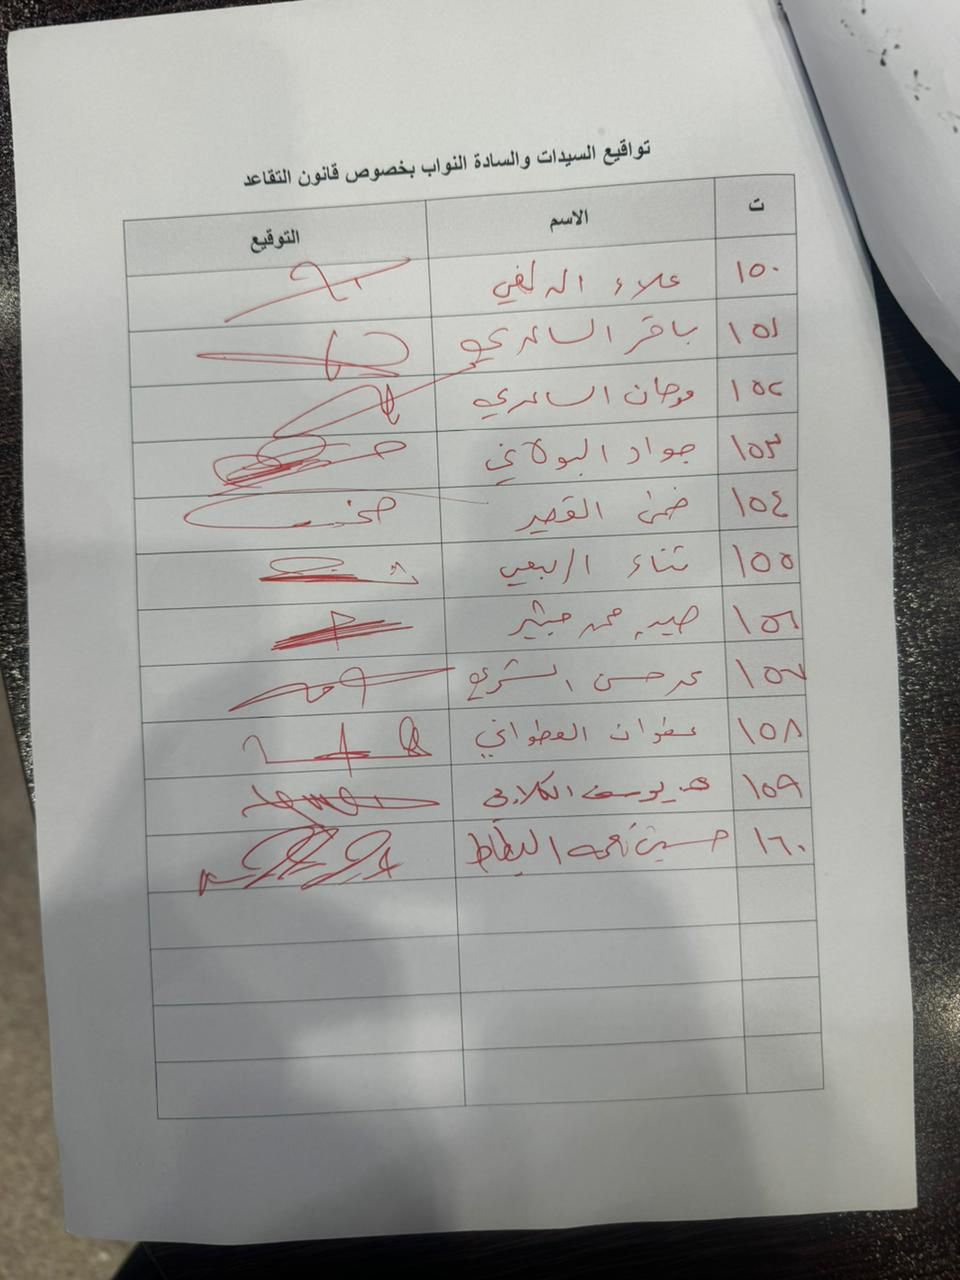 تواقيع السيدات والسادة النواب بخصوص قانون التقاعد
ت الاسم التوقيع
١٥٠ علاء الدلفي
١٥١ باقر الساعدي
١٥٢ موحان الساعدي
١٥٣ جواد البولاني
١٥٤ ضحى القصير
١٥٥ ثناء الربيعي
١٥٦ محمد
١٥٧ حسن
١٥٨ عطوان العطواني
١٥٩ يوسف الكلابي
١٦٠ حسين نعمه البطاط